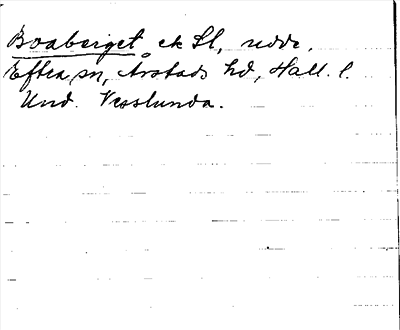 Boaberget, ek Sl, udde,
Eftra sn, Årstads hd, Hall. l.
Und. Vesslunda.